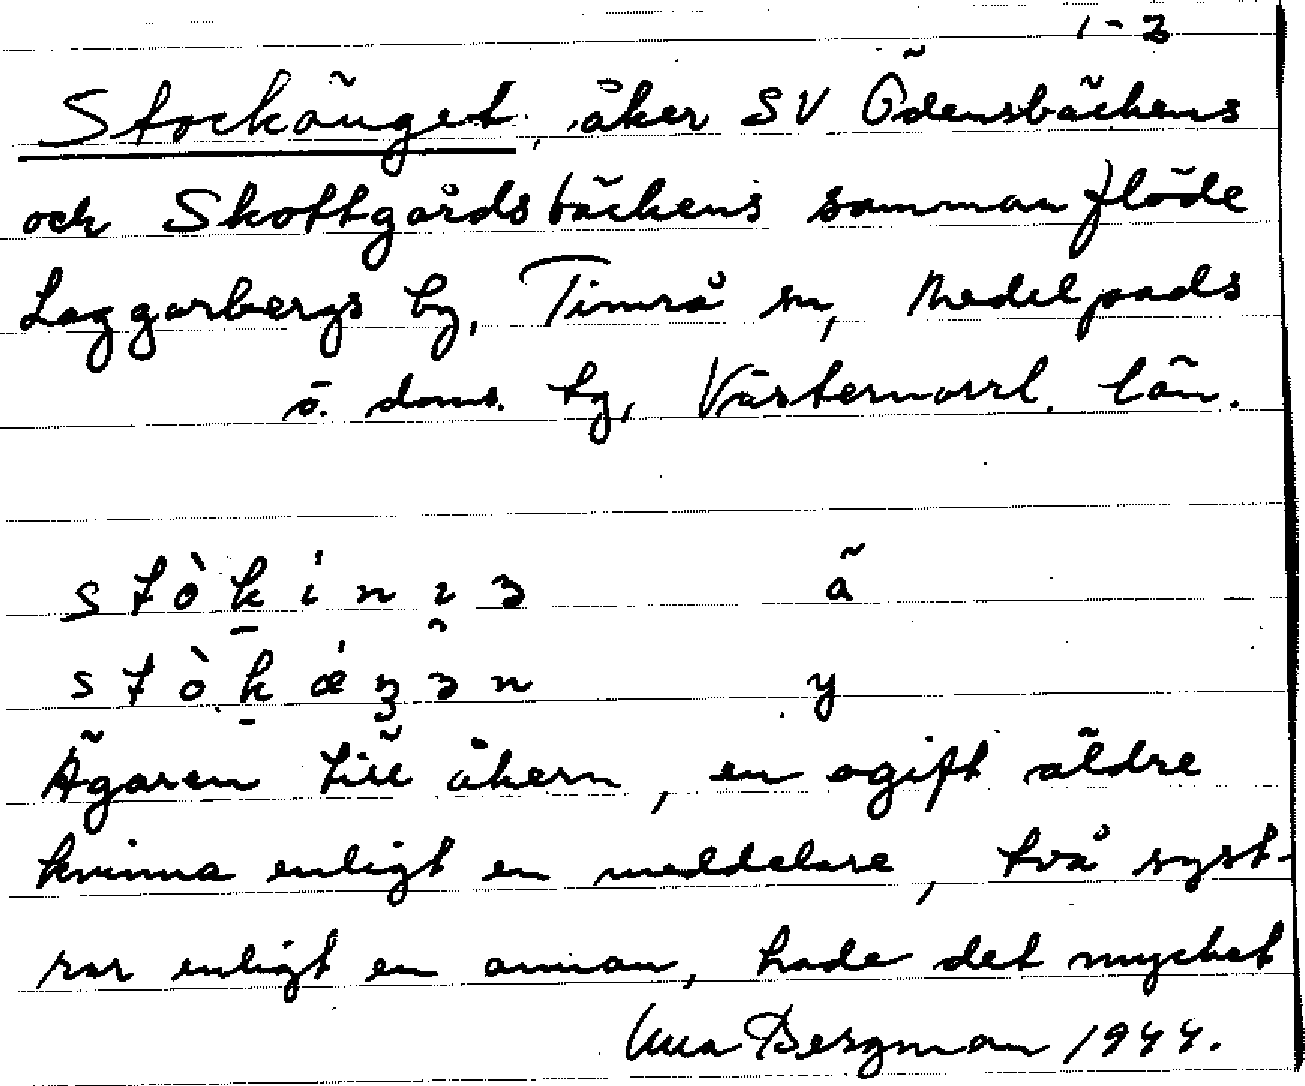 1-3
Stockänget, åker SV Ödensbäckens
och Skottgårdsbäckens sammanflöde
Laggarbergs by, Timrå sn, Medelpads
ö. doms. tg, Västernorrl. län.
ä
y
Ägaren till åkern, en ogift äldre
kvinna enligt en meddelare, två syst-
rar enligt en annan, hade det mycket
Bergman 1944.